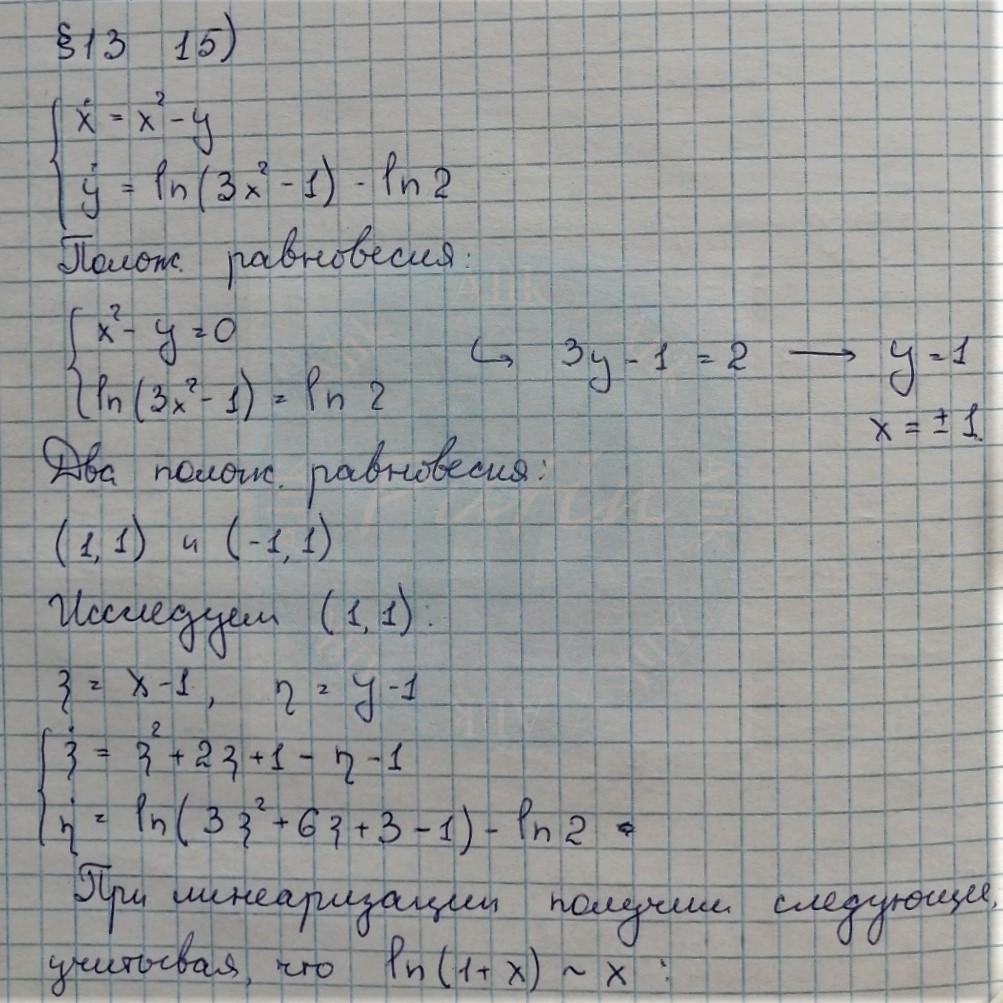 §13 15)
ẋ = x² - y
ẏ = ln(3x² - 1) - ln 2
Полож. равновесия:
x² - y = 0
ln(3x² - 1) = ln 2
↪ 3y - 1 = 2 ⟶ y = 1
x = ± 1
Два полож. равновесия:
(1, 1) и (-1, 1)
Исследуем (1, 1):
ξ = x - 1, η = y - 1
ξ̇ = ξ² + 2ξ + 1 - η - 1
η̇ = ln(3ξ² + 6ξ + 3 - 1) - ln 2
При линеаризации получим следующее,
учитывая, что ln(1 + x) ~ x :